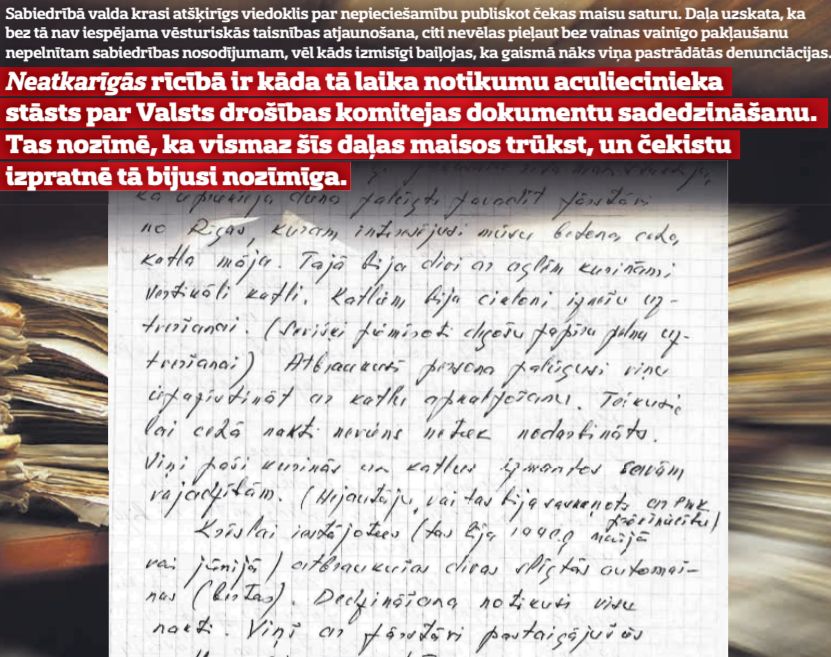 Sabiedrībā valda krasi atšķirīgs viedoklis par nepieciešamību publiskot čekas maisu saturu. Daļa uzskata, ka
bez tā nav iespējama vēsturiskās taisnības atjaunošana, citi nevēlas pieļaut bez vainas vainīgo pakļaušanu
nepelnītam sabiedrības nosodījumam, vēl kāds izmisīgi baiļojas, ka gaismā nāks viņa pastrādātās denunciācijas.
Neatkarīgās rīcībā ir kāda tā laika notikumu aculiecinieka
stāsts par Valsts drošības komitejas dokumentu sadedzināšanu.
Tas nozīmē, ka vismaz šīs daļas maisos trūkst, un čekistu
izpratnē tā bijusi nozīmīga.
ka iepriekšējā dienā palūgts pavadīt pārstāvi
no Rīgas, kuram interesējusi mūsu betona ceha
katla māja. Tajā bija divi ar oglēm kurināmi
vertikāli katli. Katliem bija cikloni izmešu uz-
tveršanai. (Sevišķi piemēroti degošu papīru pelnu uz-
tveršanai) Atbraukusī persona palūgusi viņu
iepazīstināt ar katlu apkalpošanu. Teikusi
lai cehā naktī neviens netiek nodarbināts.
Viņi paši kurinās un katlus izmantos savām
vajadzībām. (Nejautāju, vai tas bija saskaņots ar PMK
priekšniecību)
Krēslai iestājoties (tas bija 1990.g maijā
vai jūnijā) atbraukušas divas slēgtās automašī-
nas (bustas). Dedzināšana notikusi visu
nakti. Viņi ar pārstāvi pastaigājušās